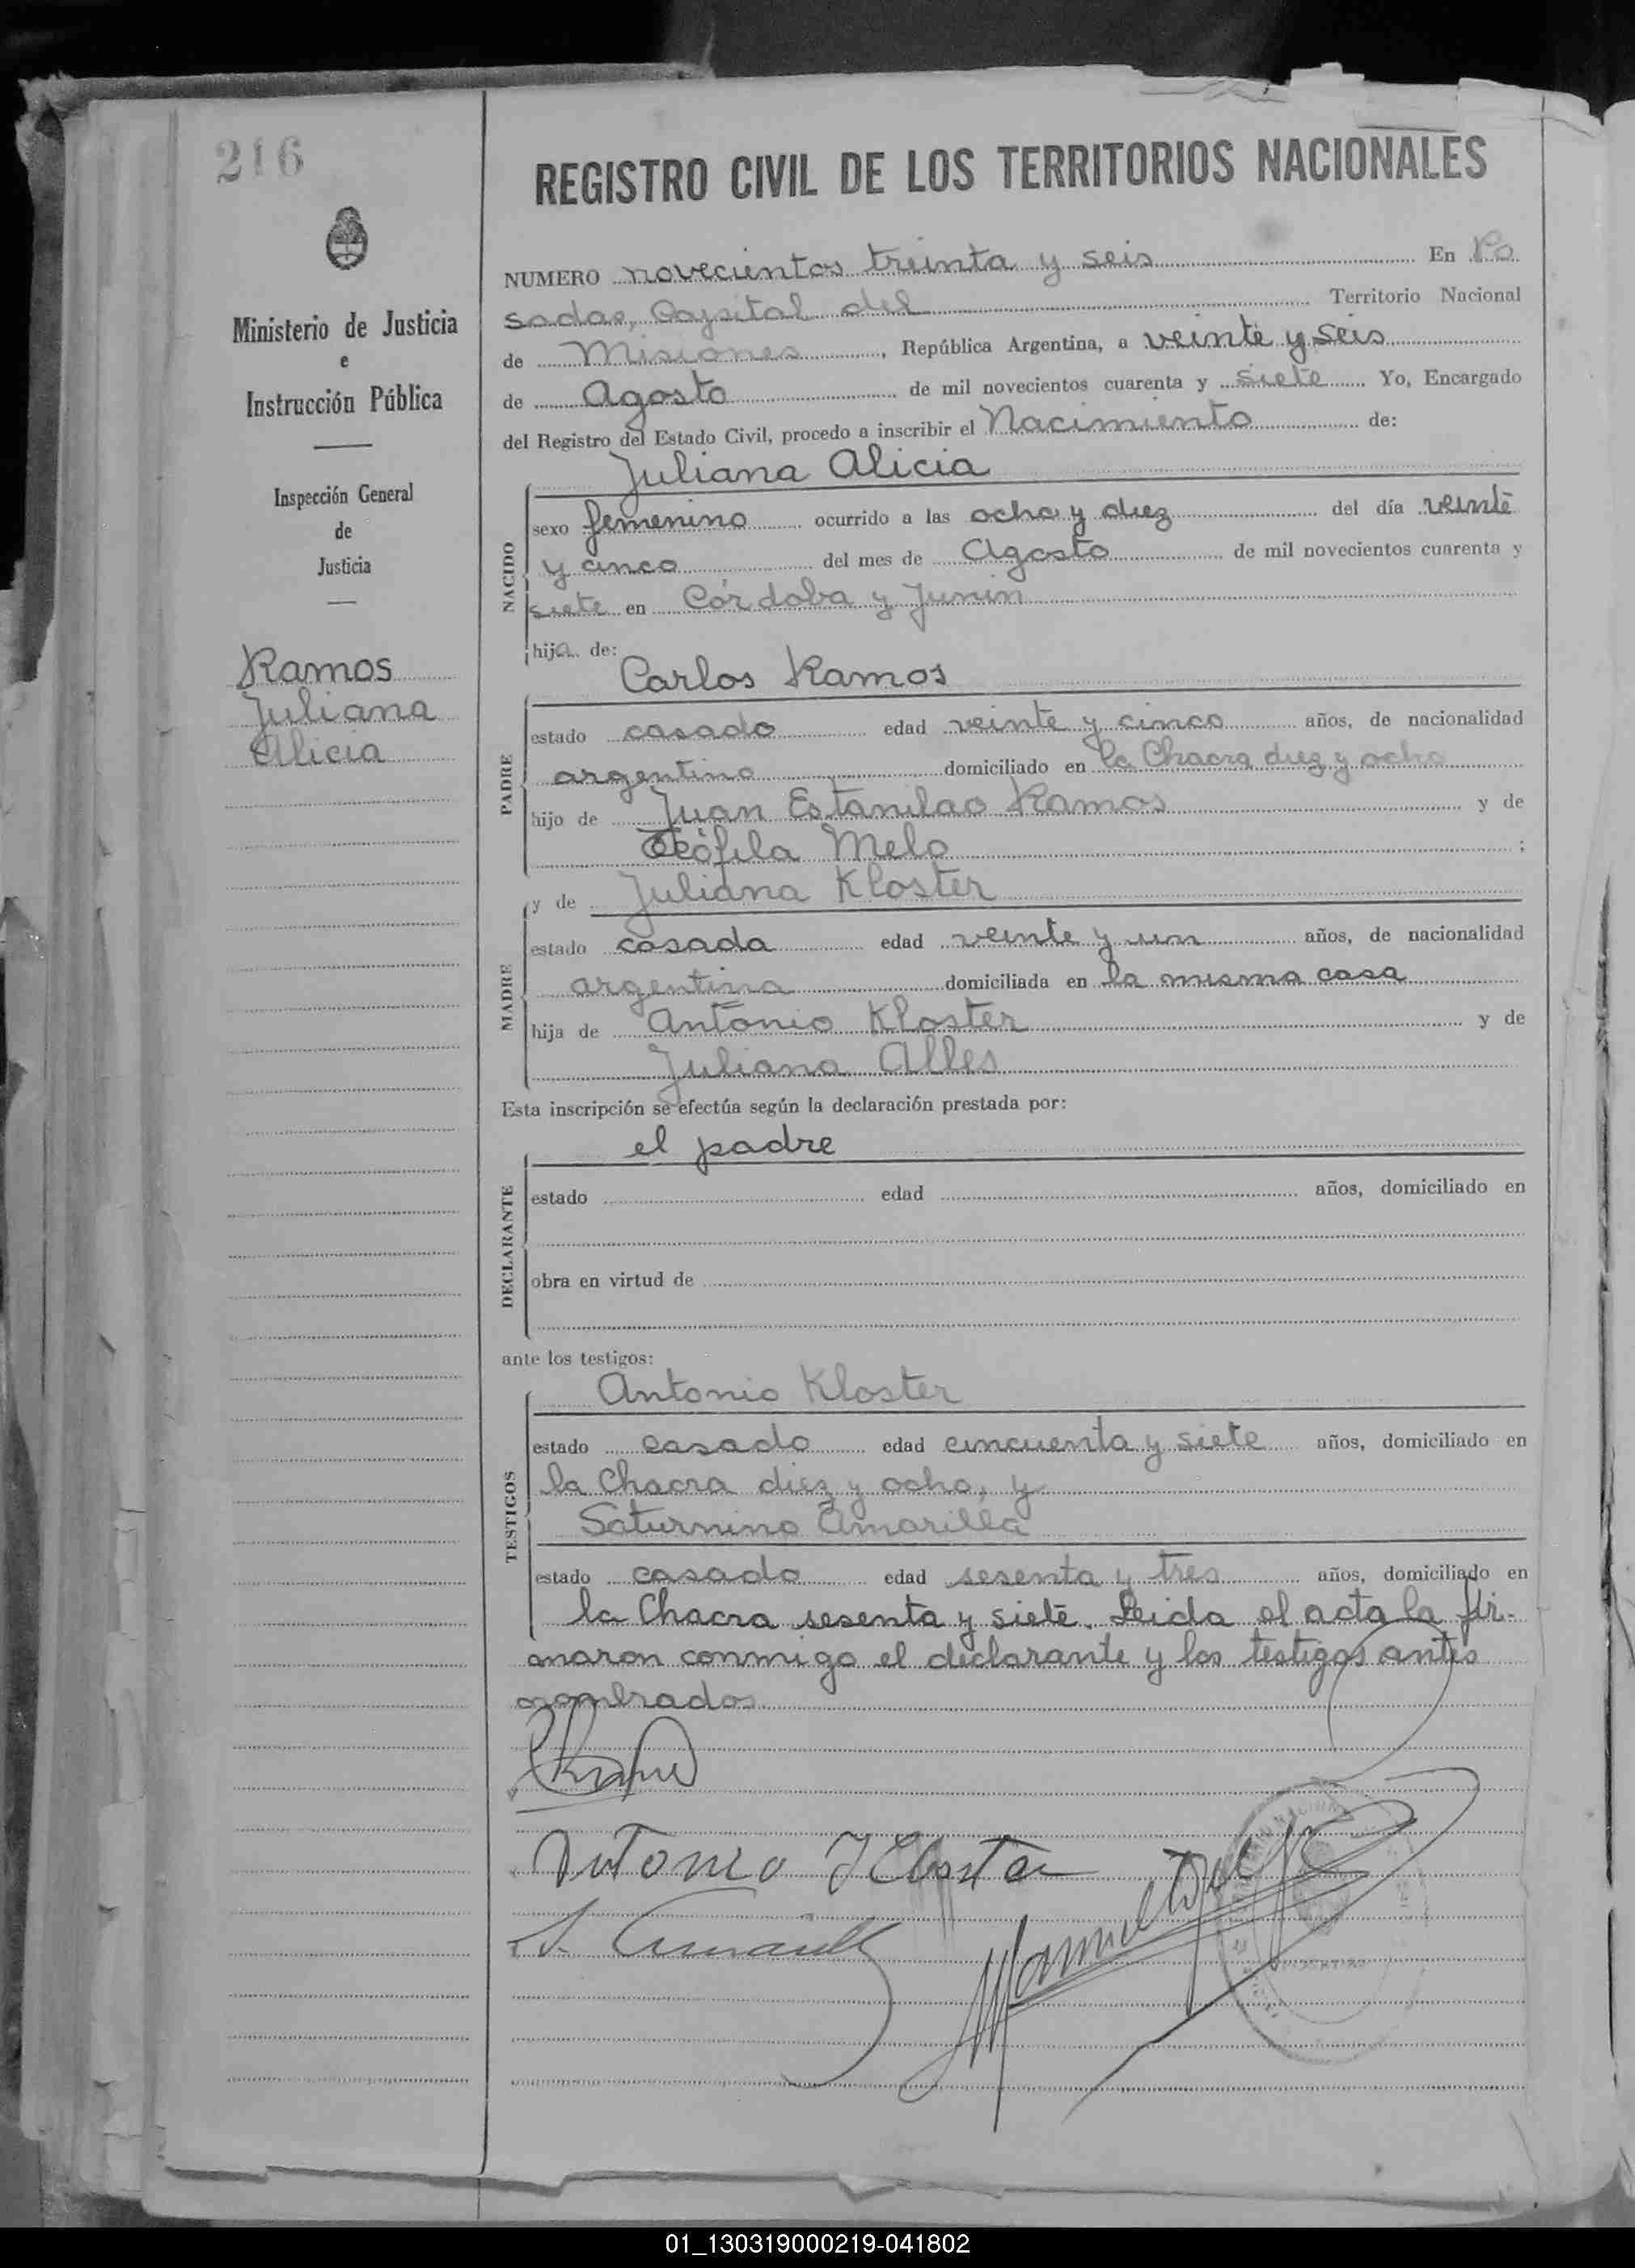 216
Ministerio de Justicia
e
Instrucción Pública
Inspección General
de
Justicia
Ramos
Juliana
Alicia
REGISTRO CIVIL DE LOS TERRITORIOS NACIONALES
NUMERO novecientos treinta y seis En Po
sadas, Capital del Territorio Nacional
de Misiones, República Argentina, a veinte y seis
de Agosto de mil novecientos cuarenta y siete Yo, Encargado
del Registro del Estado Civil, procedo a inscribir el Nacimiento de:
Juliana Alicia
NACIDO
sexo femenino ocurrido a las ocho y diez del día veinte
y cinco del mes de Agosto de mil novecientos cuarenta y
siete en Córdoba y Junin
hija de:
Carlos Ramos
PADRE
estado casado edad veinte y cinco años, de nacionalidad
argentino domiciliado en la Chacra diez y ocho
hijo de Juan Estanilao Ramos y de
Teófila Melo ;
y de Juliana Kloster
MADRE
estado casada edad veinte y un años, de nacionalidad
argentina domiciliada en la misma casa
hija de Antonio Kloster y de
Juliana Alles
Esta inscripción se efectúa según la declaración prestada por:
el padre
DECLARANTE
estado edad años, domiciliado en
obra en virtud de
ante los testigos:
Antonio Kloster
TESTIGOS
estado casado edad cincuenta y siete años, domiciliado en
la Chacra diez y ocho, y
Saturnino Amarilla
estado casado edad sesenta y tres años, domiciliado en
la Chacra sesenta y siete. Leida el acta la fir-
maron conmigo el declarante y los testigos antes
nombrados
Antonio Kloster
01_130319000219-041802